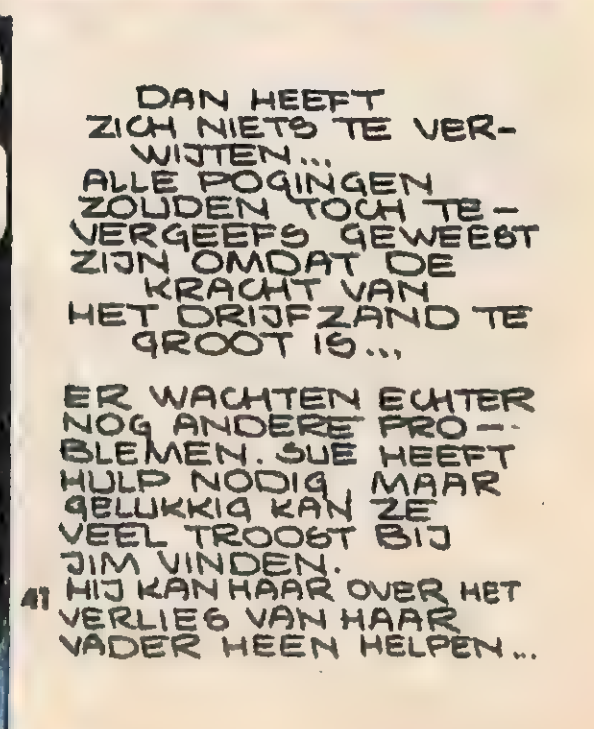 DAN HEEFT
ZICH NIETS TE VER-
WIJTEN...
ALLE POGINGEN
ZOUDEN TOCH TE-
VERGEEFS GEWEEST
ZIJN OMDAT DE
KRACHT VAN
HET DRIJFZAND TE
GROOT IS...
ER WACHTEN ECHTER
NOG ANDERE PRO-
BLEMEN. SUE HEEFT
HULP NODIG, MAAR
GELUKKIG KAN ZE
VEEL TROOST BIJ
JIM VINDEN.
HIJ KAN HAAR OVER HET
VERLIES VAN HAAR
VADER HEEN HELPEN...
41